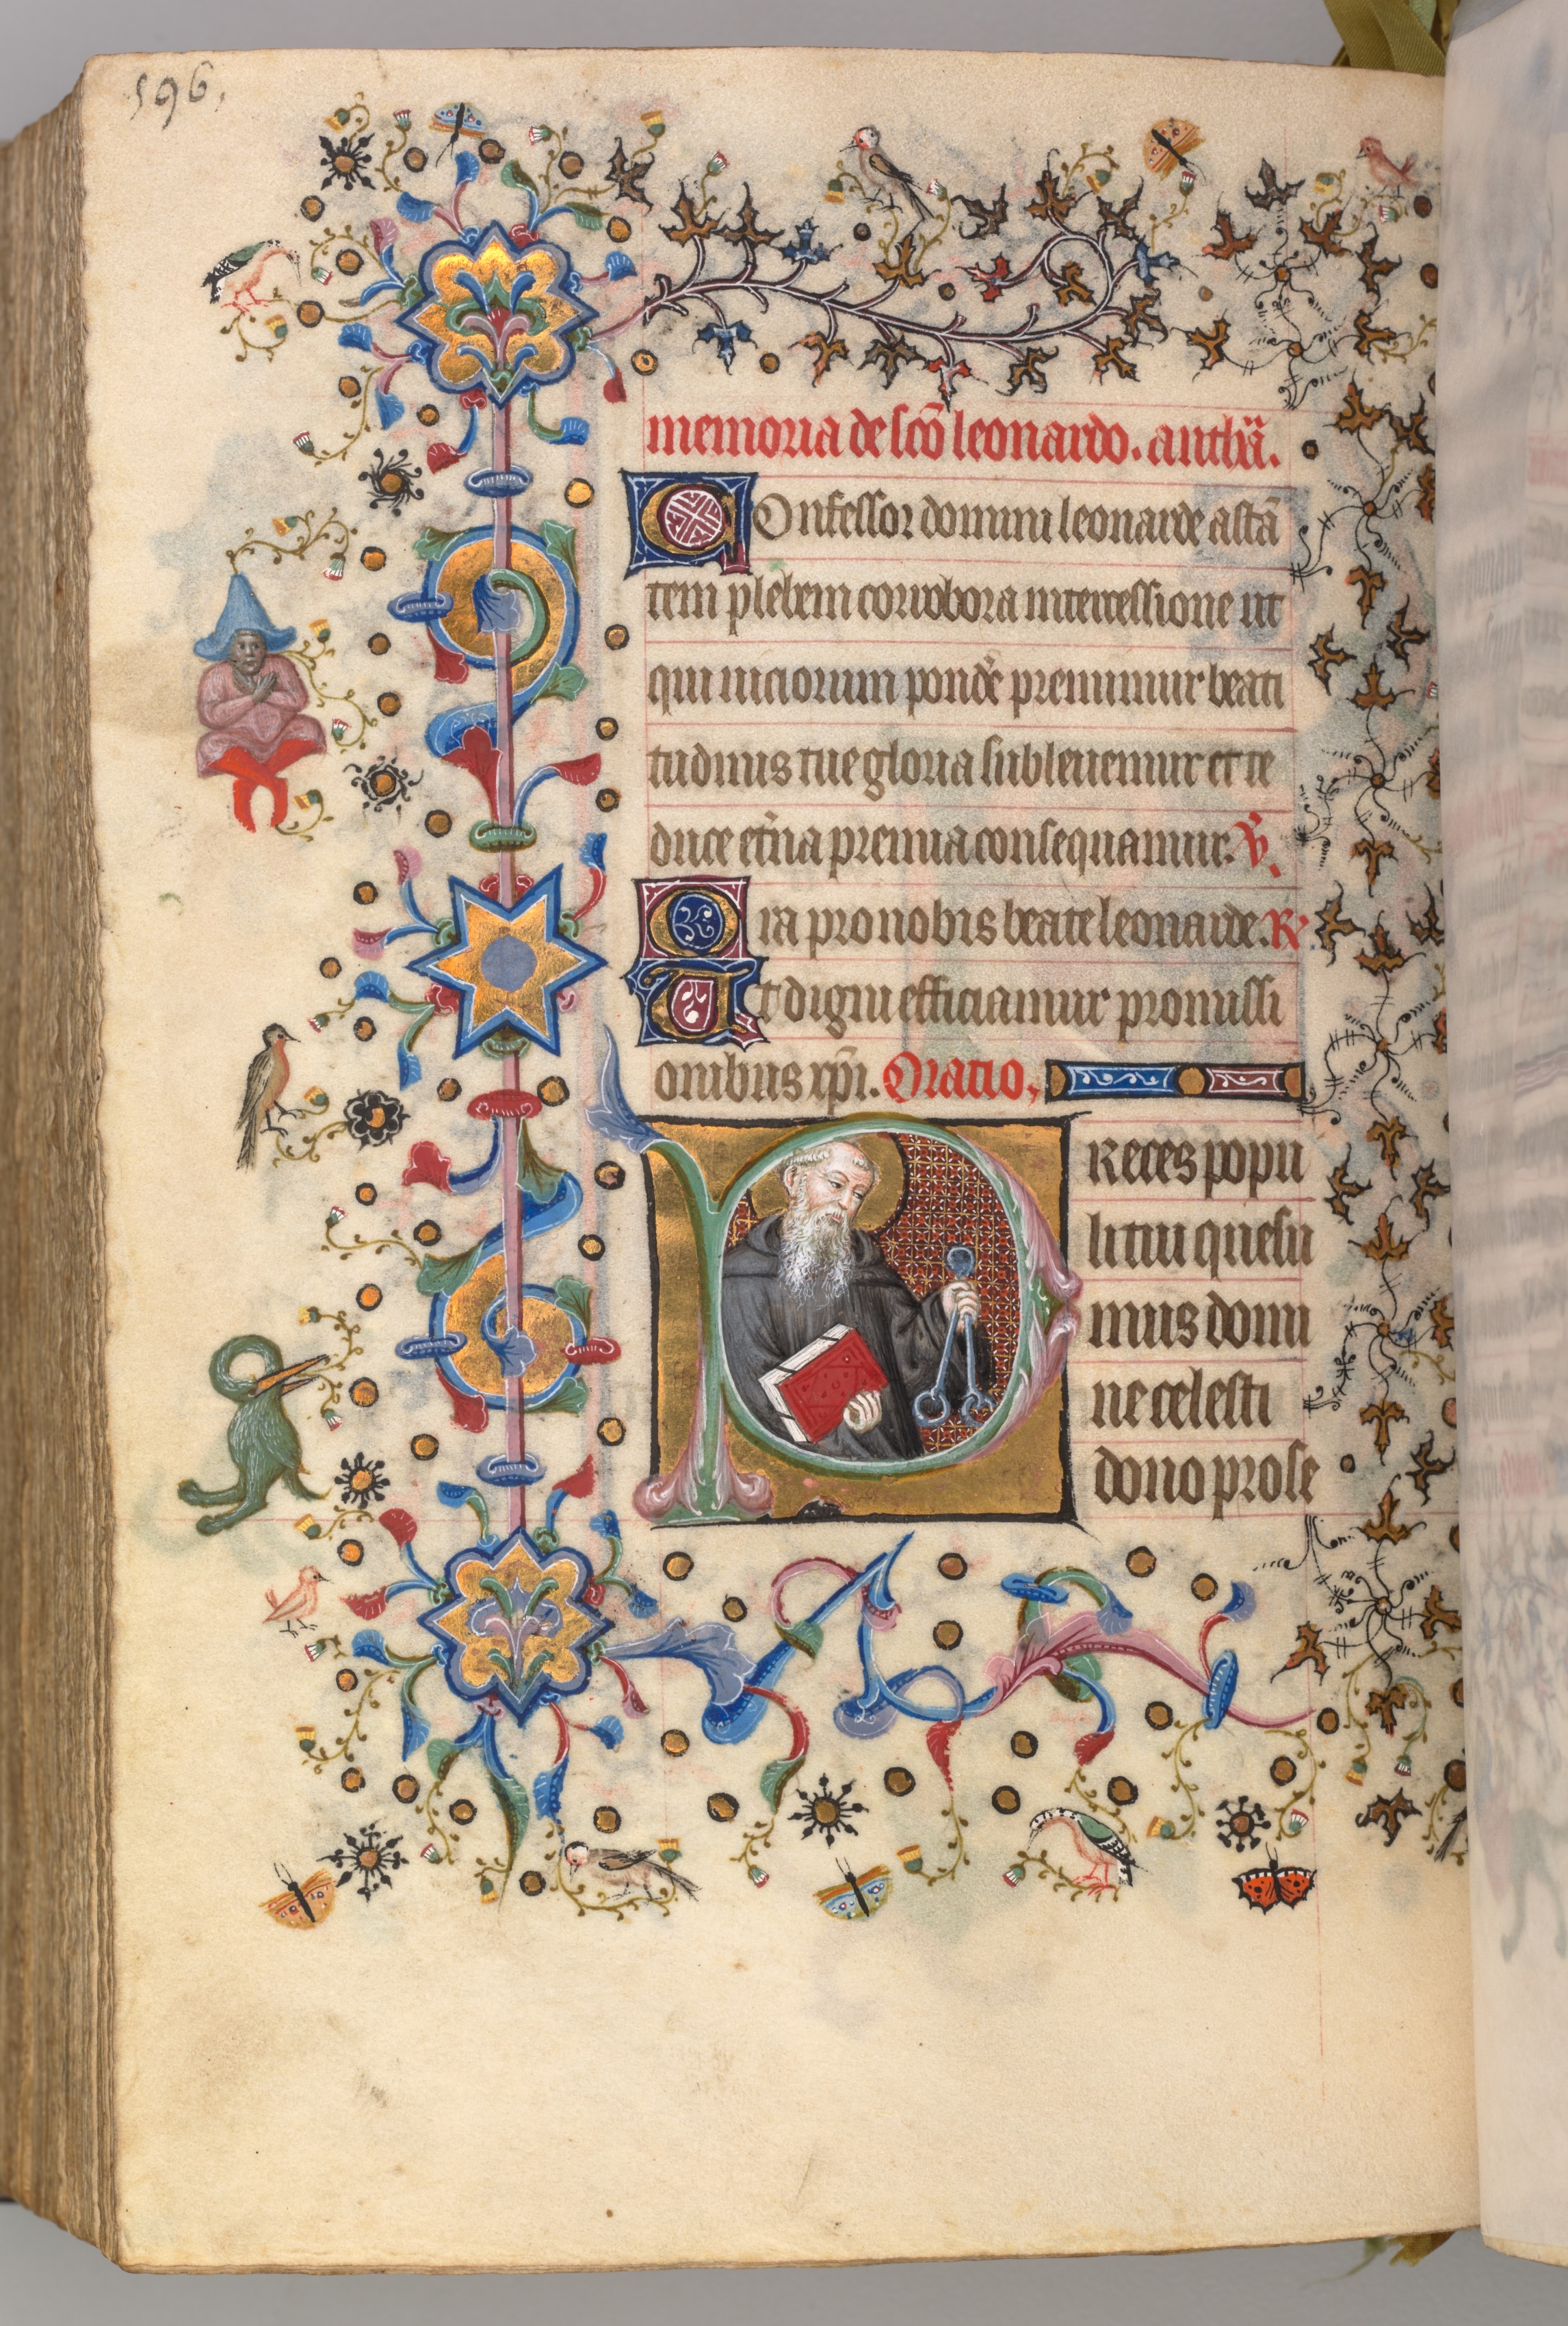 596,
memoria de sc̄o leonardo. anthā.
Confessor domini leonarde astā
tem plebem corrobora intercessione ut
qui uiciorum pondē premimur beati
tudinis tue gloria subleuemur et te
duce et̄na premia consequamur. V̄.
Ora pro nobis beate leonarde. R
Ut digni efficiamur promissi
onibus xp̄i. Oratio.
Preces popu
li tui quesu
mus domi
ne celesti
dono prose